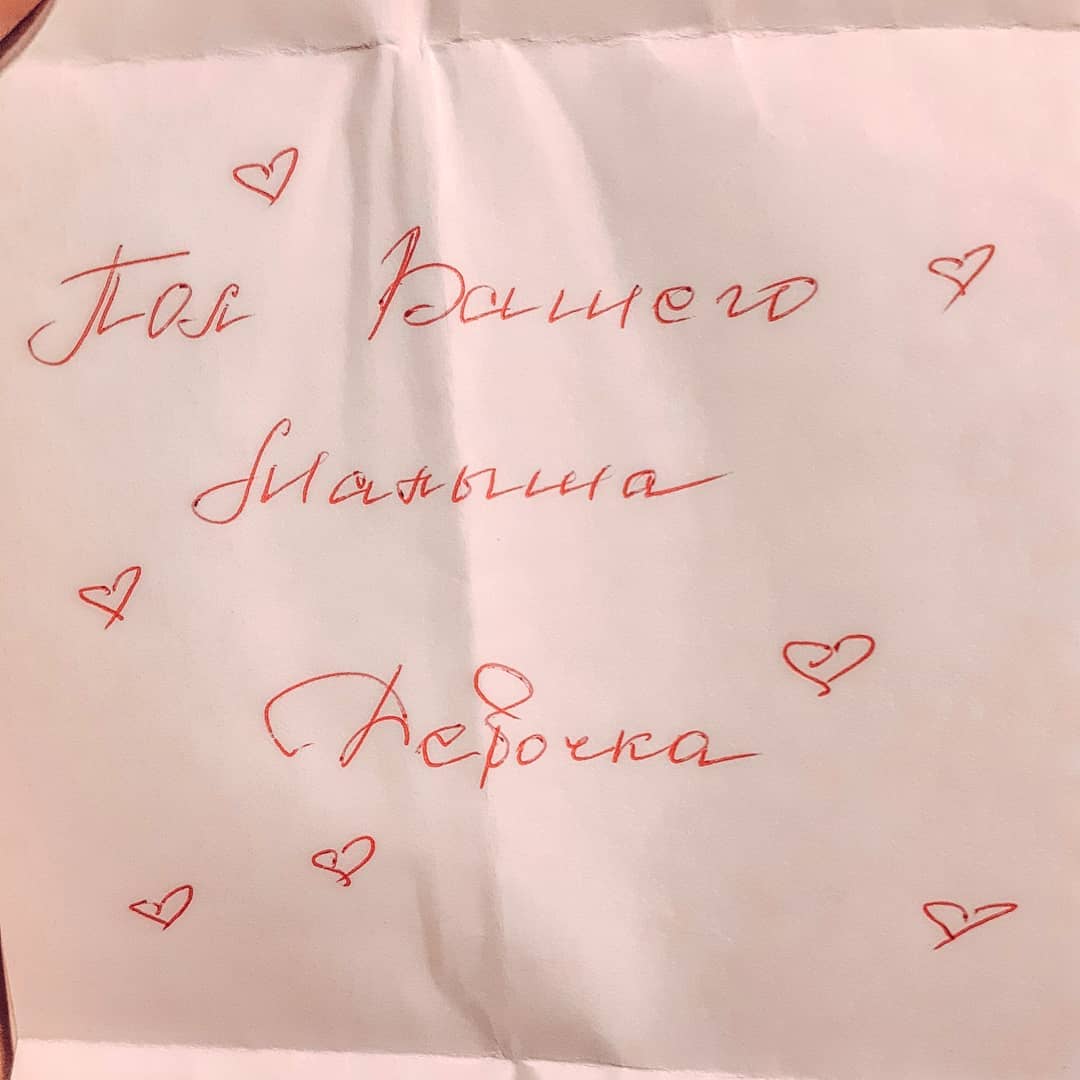 Пол Вашего
Малыша
Девочка